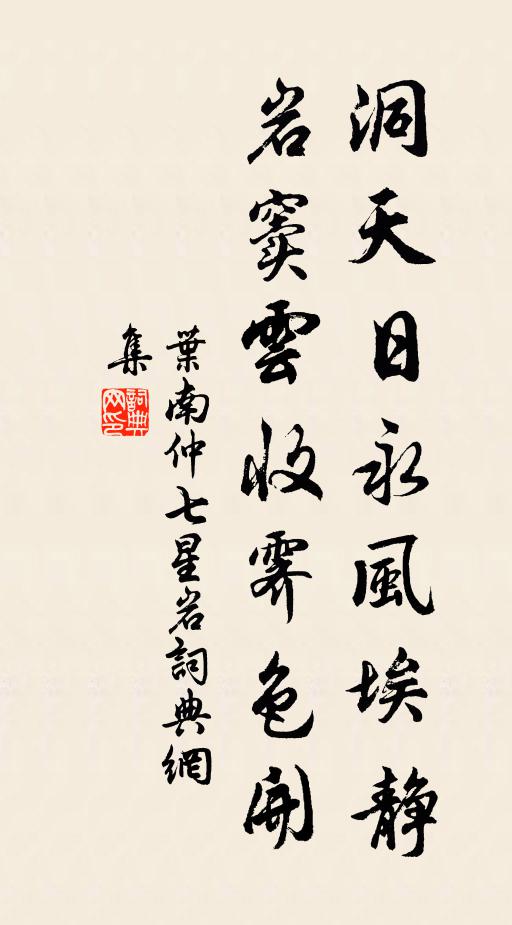 洞天日永風埃靜
岩竇雲收霽色開
葉南仲七星岩詞典網
集
詞典
网印